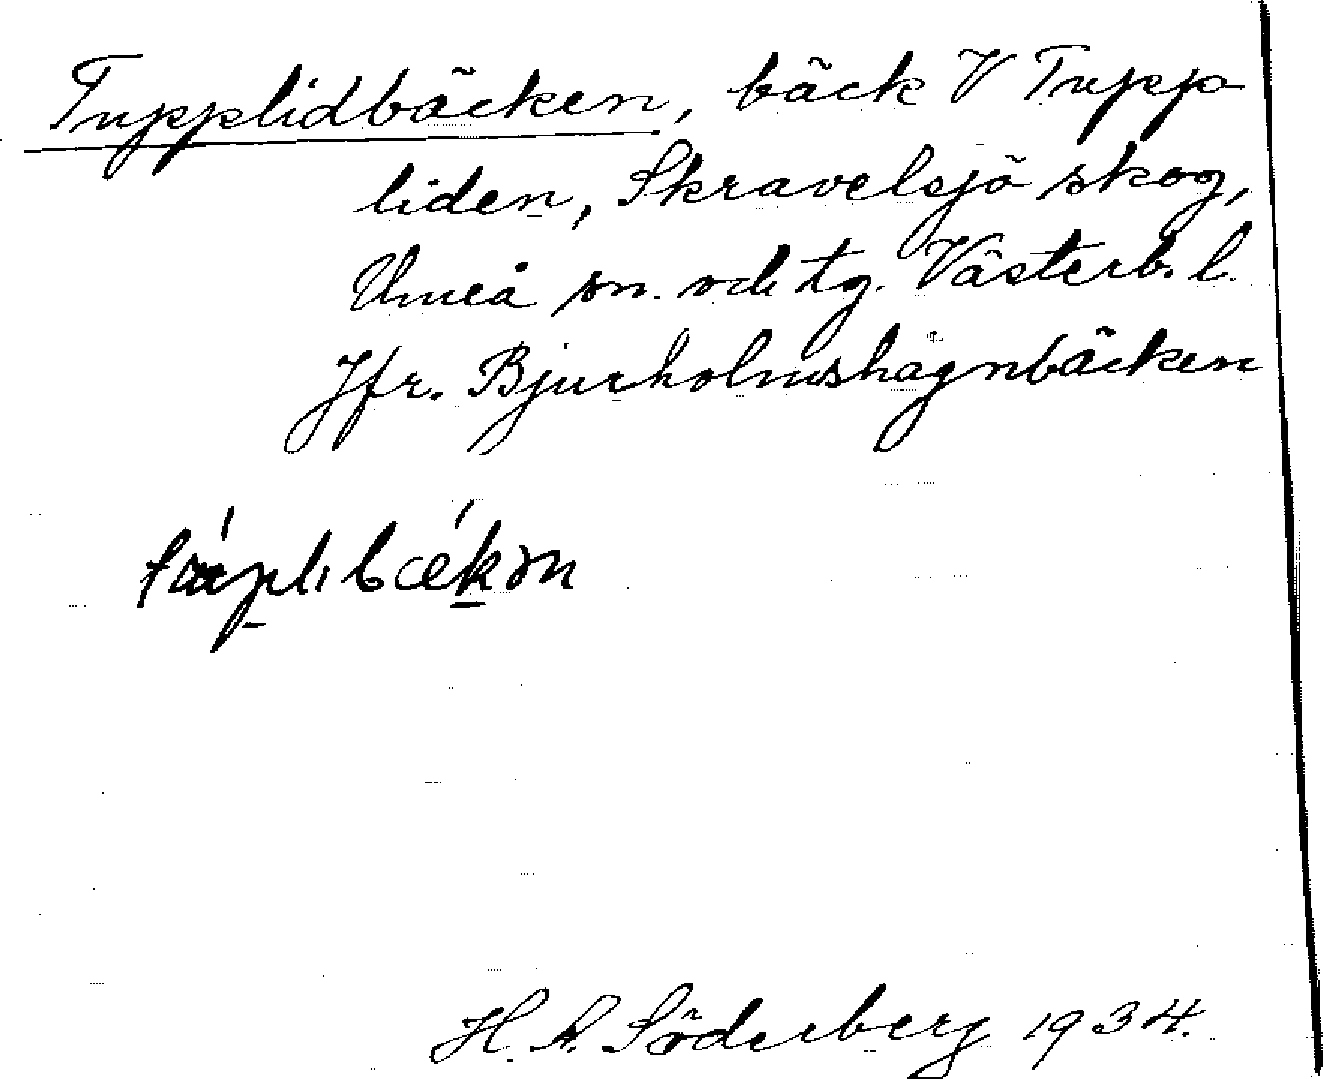 Tupplidbäcken, bäck V Tupp
liden, Skravelsjö skog,
Umeå sn. och tg. Västerb. l.
Jfr. Bjurholmshägnbäcken
H. A. Söderberg 1934.